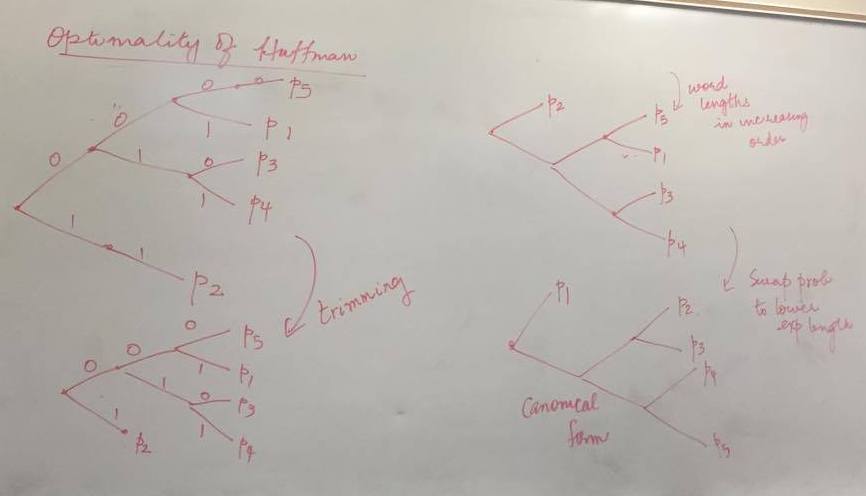 Optimality of Huffman
0 0 p5
0
1 p1
0
1 0 p3
1 p4
1
1
p2
trimming
0 p5
0 0
1 p1
1 0 p3
1 p4
1
p2
p2
p5
p1
p3
p4
word
lengths
in increasing
order
p1
p2
p3
p4
p5
Swap prob
to lower
exp length
Canonical
form